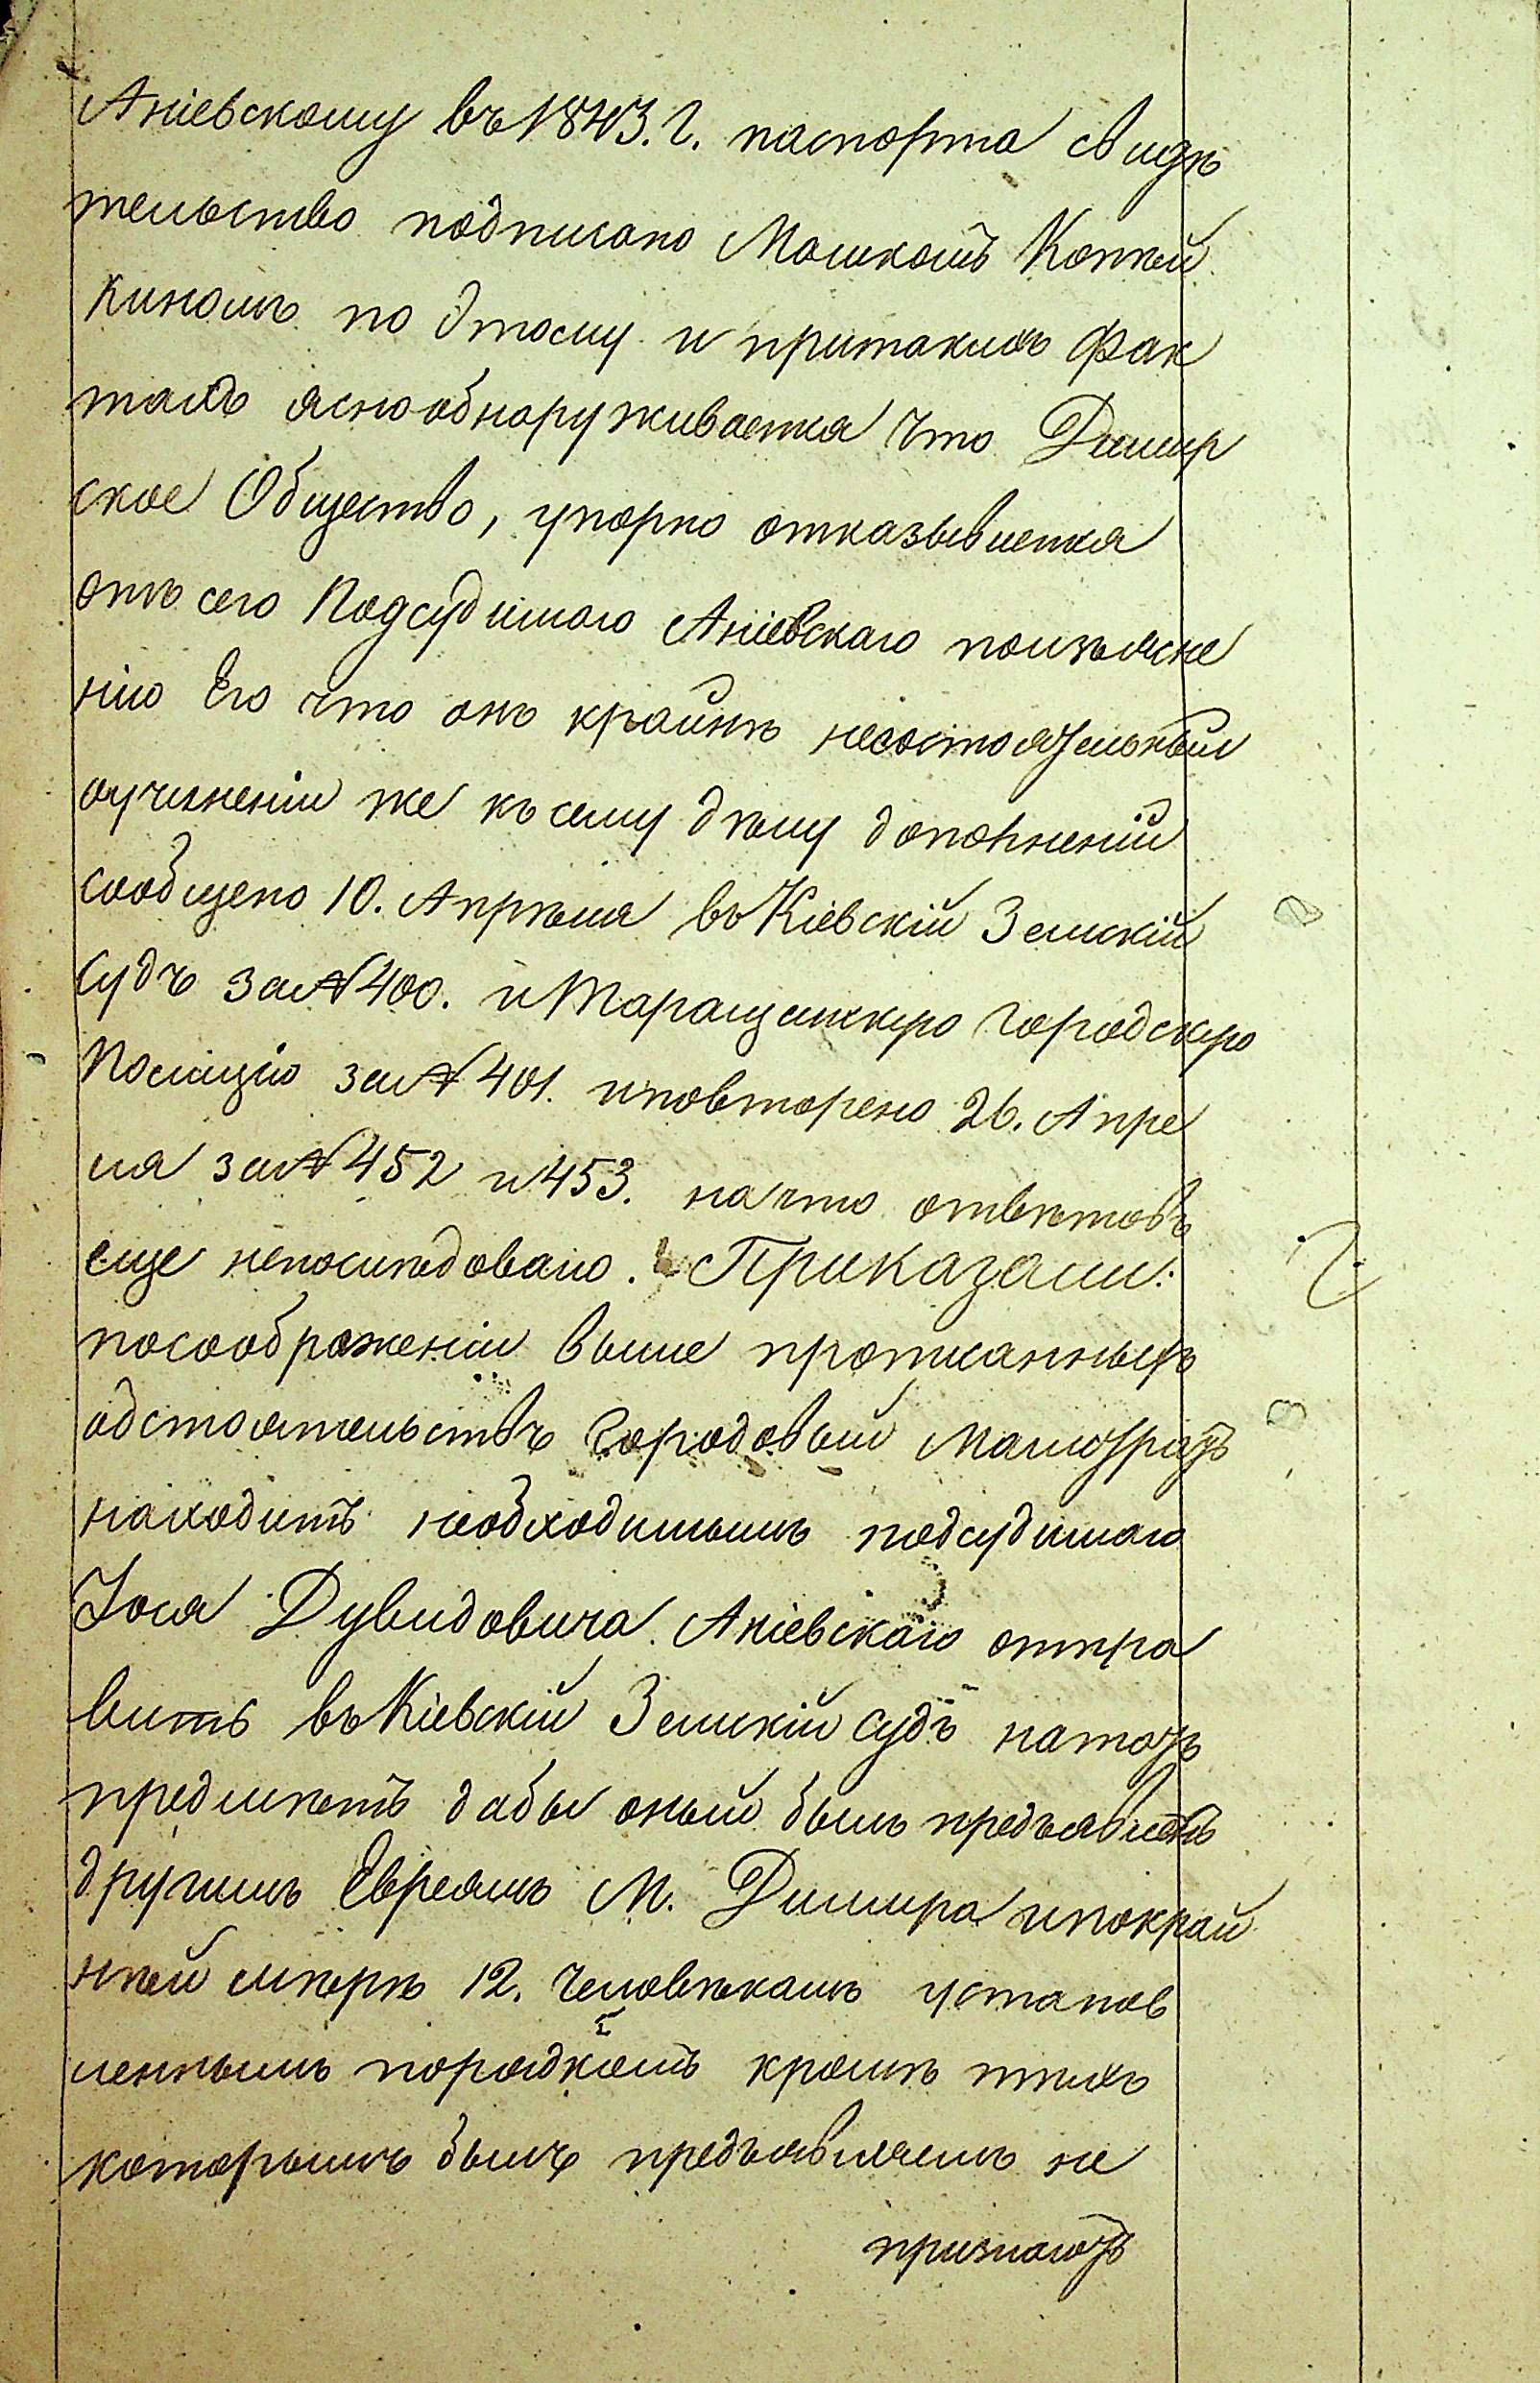 Аніевскому въ 1843. г. паспорта свидѣ
тельство подписано Мошкомъ Копѣй
кинымъ по этому и притакихъ фак
тахъ яснообнаруживается что Димир
ское Общество, упорно отказывается
отъ сего Подсудимаго Аніевскаго поизъясне
нію Его что онъ крайнѣ несостоятельный
оучиненіи же къ сему дѣлу дополненій
сообщено 10. Апрѣля въ Кіевскій Земскій
Судъ за № 400. и Таращанскую городскую
Полицію за № 401. и повторено 26. Апре
ля за № 452 и 453. на что отвѣтовъ
еще непослѣдовало. Приказали:
посоображеніи выше прописанныхъ
обстоятельствъ Городовый Магистратъ
находитъ необходимымъ подсудимаго
Іося Дувидовича Аніевскаго отпра
вить въ Кіевскій Земскій Судъ натотъ
предмѣтъ дабы оный былъ предъявленъ
другимъ Евреямъ М. Димира и покрай
нѣй мѣрѣ 12. Человѣкамъ установ
леннымъ порядкомъ кромѣ тѣхъ
которымъ былъ предъявляемъ не
признаютъ